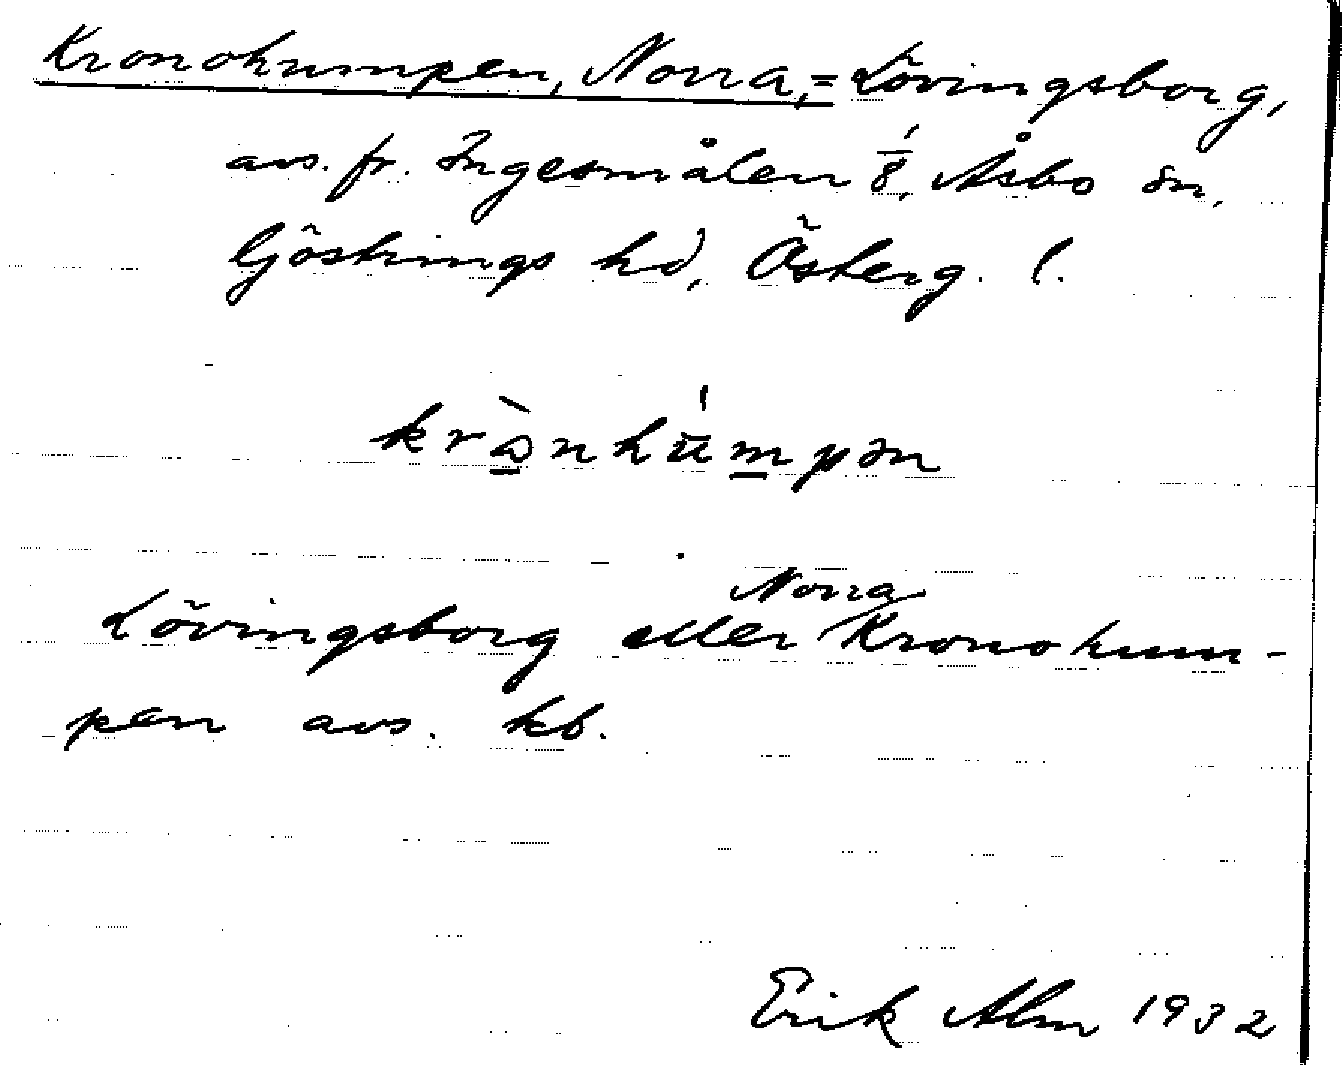 Kronohumpen, Norra, = Lövingsborg,
avs. fr. Ingesmålen 1/8, Åsbo sn,
Göstrings hd, Österg. l.
krònhúmpən
Norra
Lövingsborg eller Kronohum-
pen avs. kb.
Erik Alm 1932